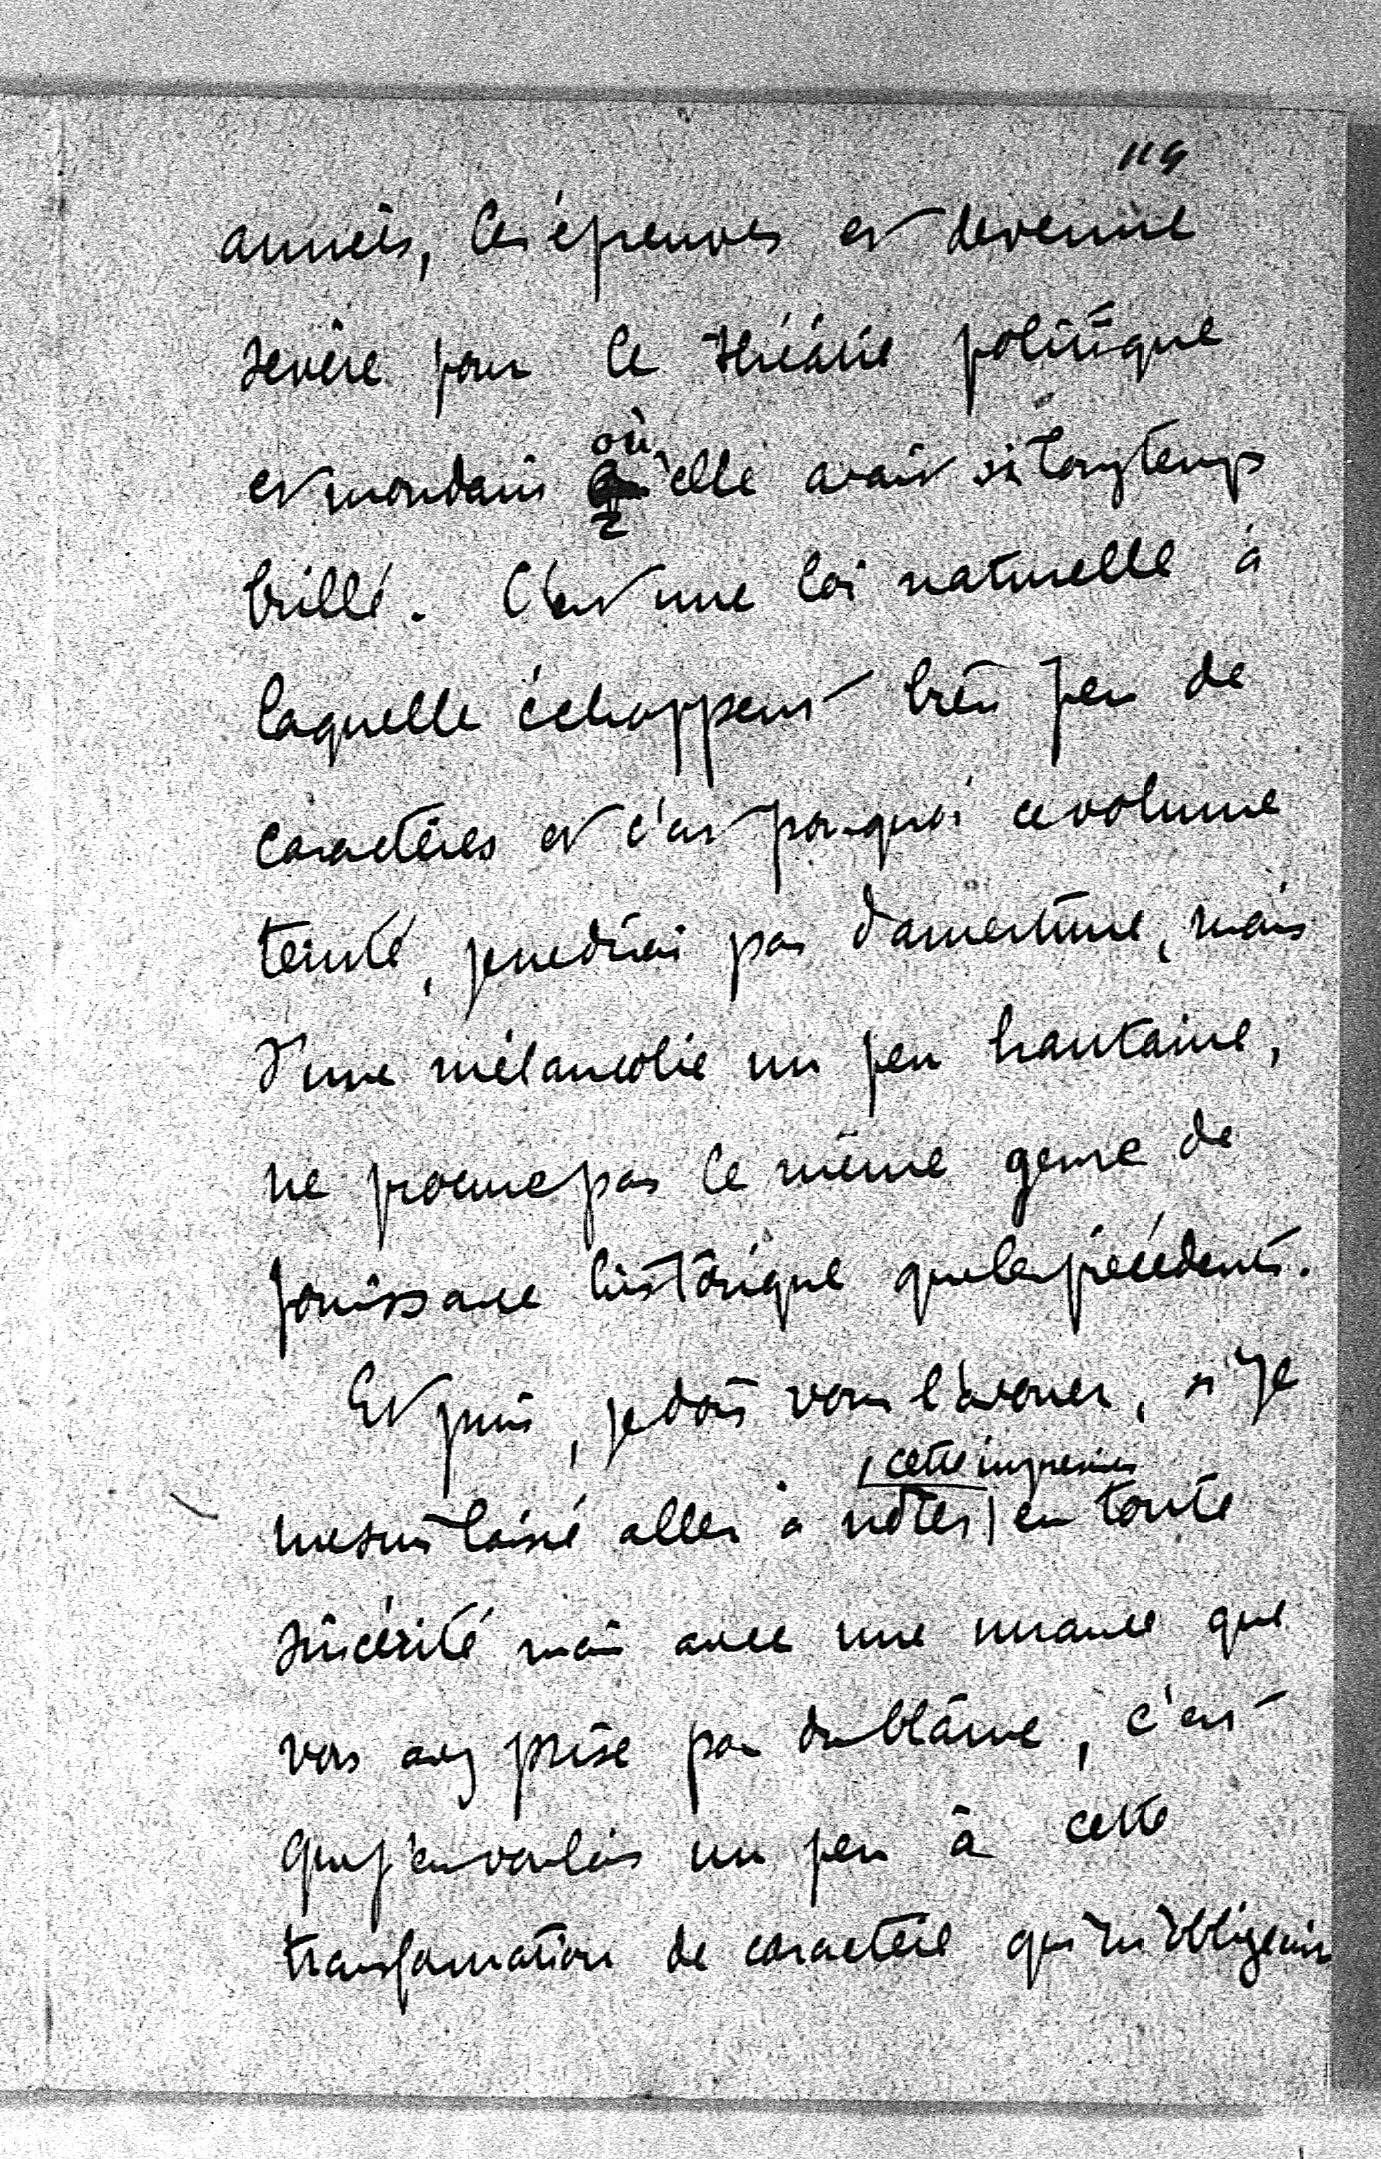 119
années, les épreuves est devenue
sévère pour le théâtre politique
et mondain où elle avait si longtemps
brillé. C'est une loi naturelle à
laquelle échappent bien peu de
caractères et c'est pourquoi ce volume
teinté, je ne dirai pas d'amertume, mais
d'une mélancolie un peu hautaine,
ne procure pas le même genre de
jouissance historique que les précédents.
Et puis, je dois vous l'avouer, si je
me suis laissé aller à noter cette impression en toute
sincérité mais avec une nuance que
vous avez prise pour du blâme, c'est
que j'en voulais un peu à cette
transformation de caractère qui m'obligeait